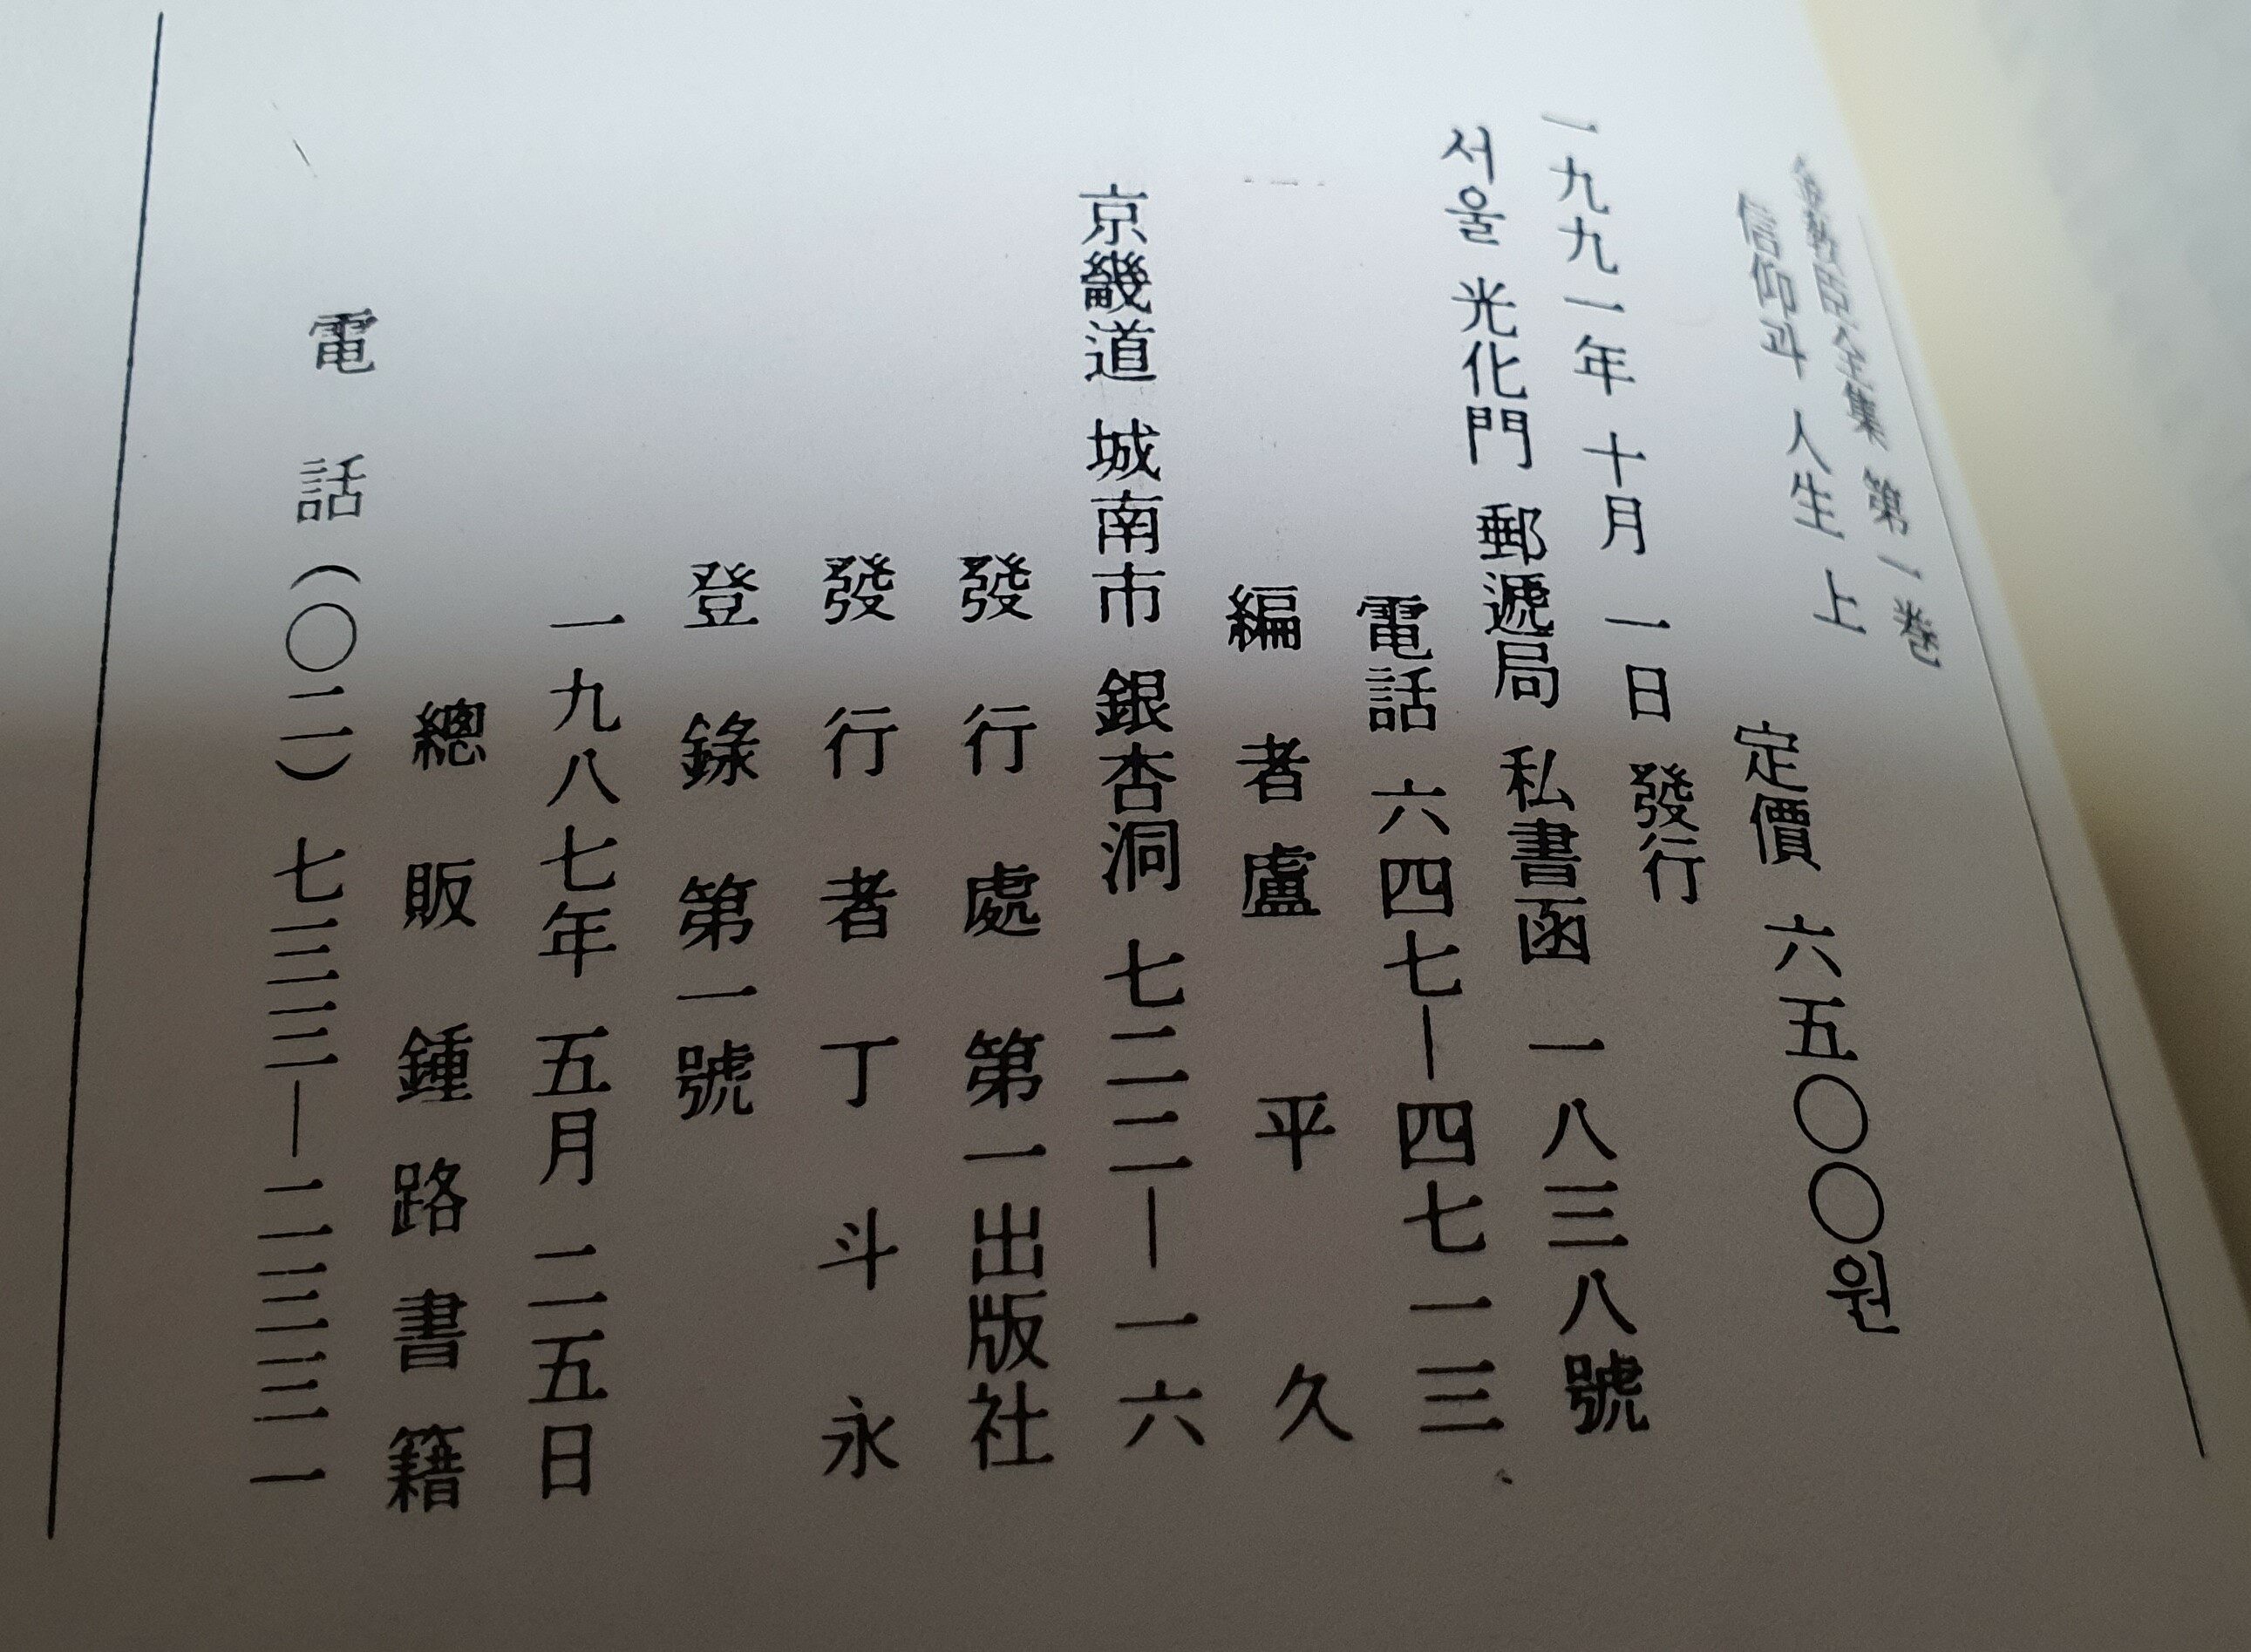 金敎臣全集 第一卷
信仰과 人生 上 定價 六五〇〇원
一九九一年 十月 一日 發行
서울 光化門 郵遞局 私書函 一八三八號
電話 六四七—四七一三
編者 盧平久
京畿道 城南市 銀杏洞 七二二—一六
發行處 第一出版社
發行者 丁斗永
登錄 第一號
一九八七年 五月 二五日
總販 鍾路書籍
電話(〇二) 七三三—二三三一